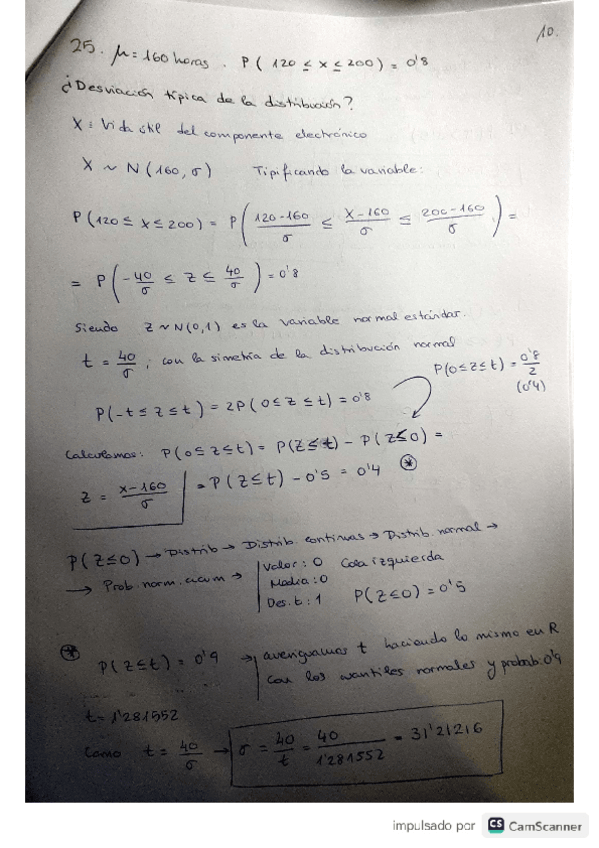 10.
25. μ = 160 horas. P(120 ≤ x ≤ 200) = 0'8
¿Desviación típica de la distribución?
X = Vida útil del componente electrónico
X ~ N(160, σ) Tipificando la variable:
P(120 ≤ x ≤ 200) = P(120-160/σ ≤ X-160/σ ≤ 200-160/σ) =
= P(-40/σ ≤ Z ≤ 40/σ) = 0'8
Siendo Z ~ N(0,1) es la variable normal estándar.
t = 40/σ ; con la simetría de la distribución normal
P(0 ≤ Z ≤ t) = 0'8/2
(0'4)
P(-t ≤ Z ≤ t) = 2P(0 ≤ Z ≤ t) = 0'8
Calculamos: P(0 ≤ Z ≤ t) = P(Z ≤ t) - P(Z ≤ 0) =
= P(Z ≤ t) - 0'5 = 0'4 *
Z = x-160/σ
P(Z ≤ 0) → Distrib → Distrib. continuas → Distrib. normal →
→ Prob. norm. acum → Valor: 0 Cola izquierda
Media: 0
Des. t: 1 P(Z ≤ 0) = 0'5
* P(Z ≤ t) = 0'9 → averiguamos t haciendo lo mismo en R
con los cuantiles normales y probab. 0'9
t = 1'281552
Como t = 40/σ → σ = 40/t = 40/1'281552 = 31'21216
impulsado por CS CamScanner